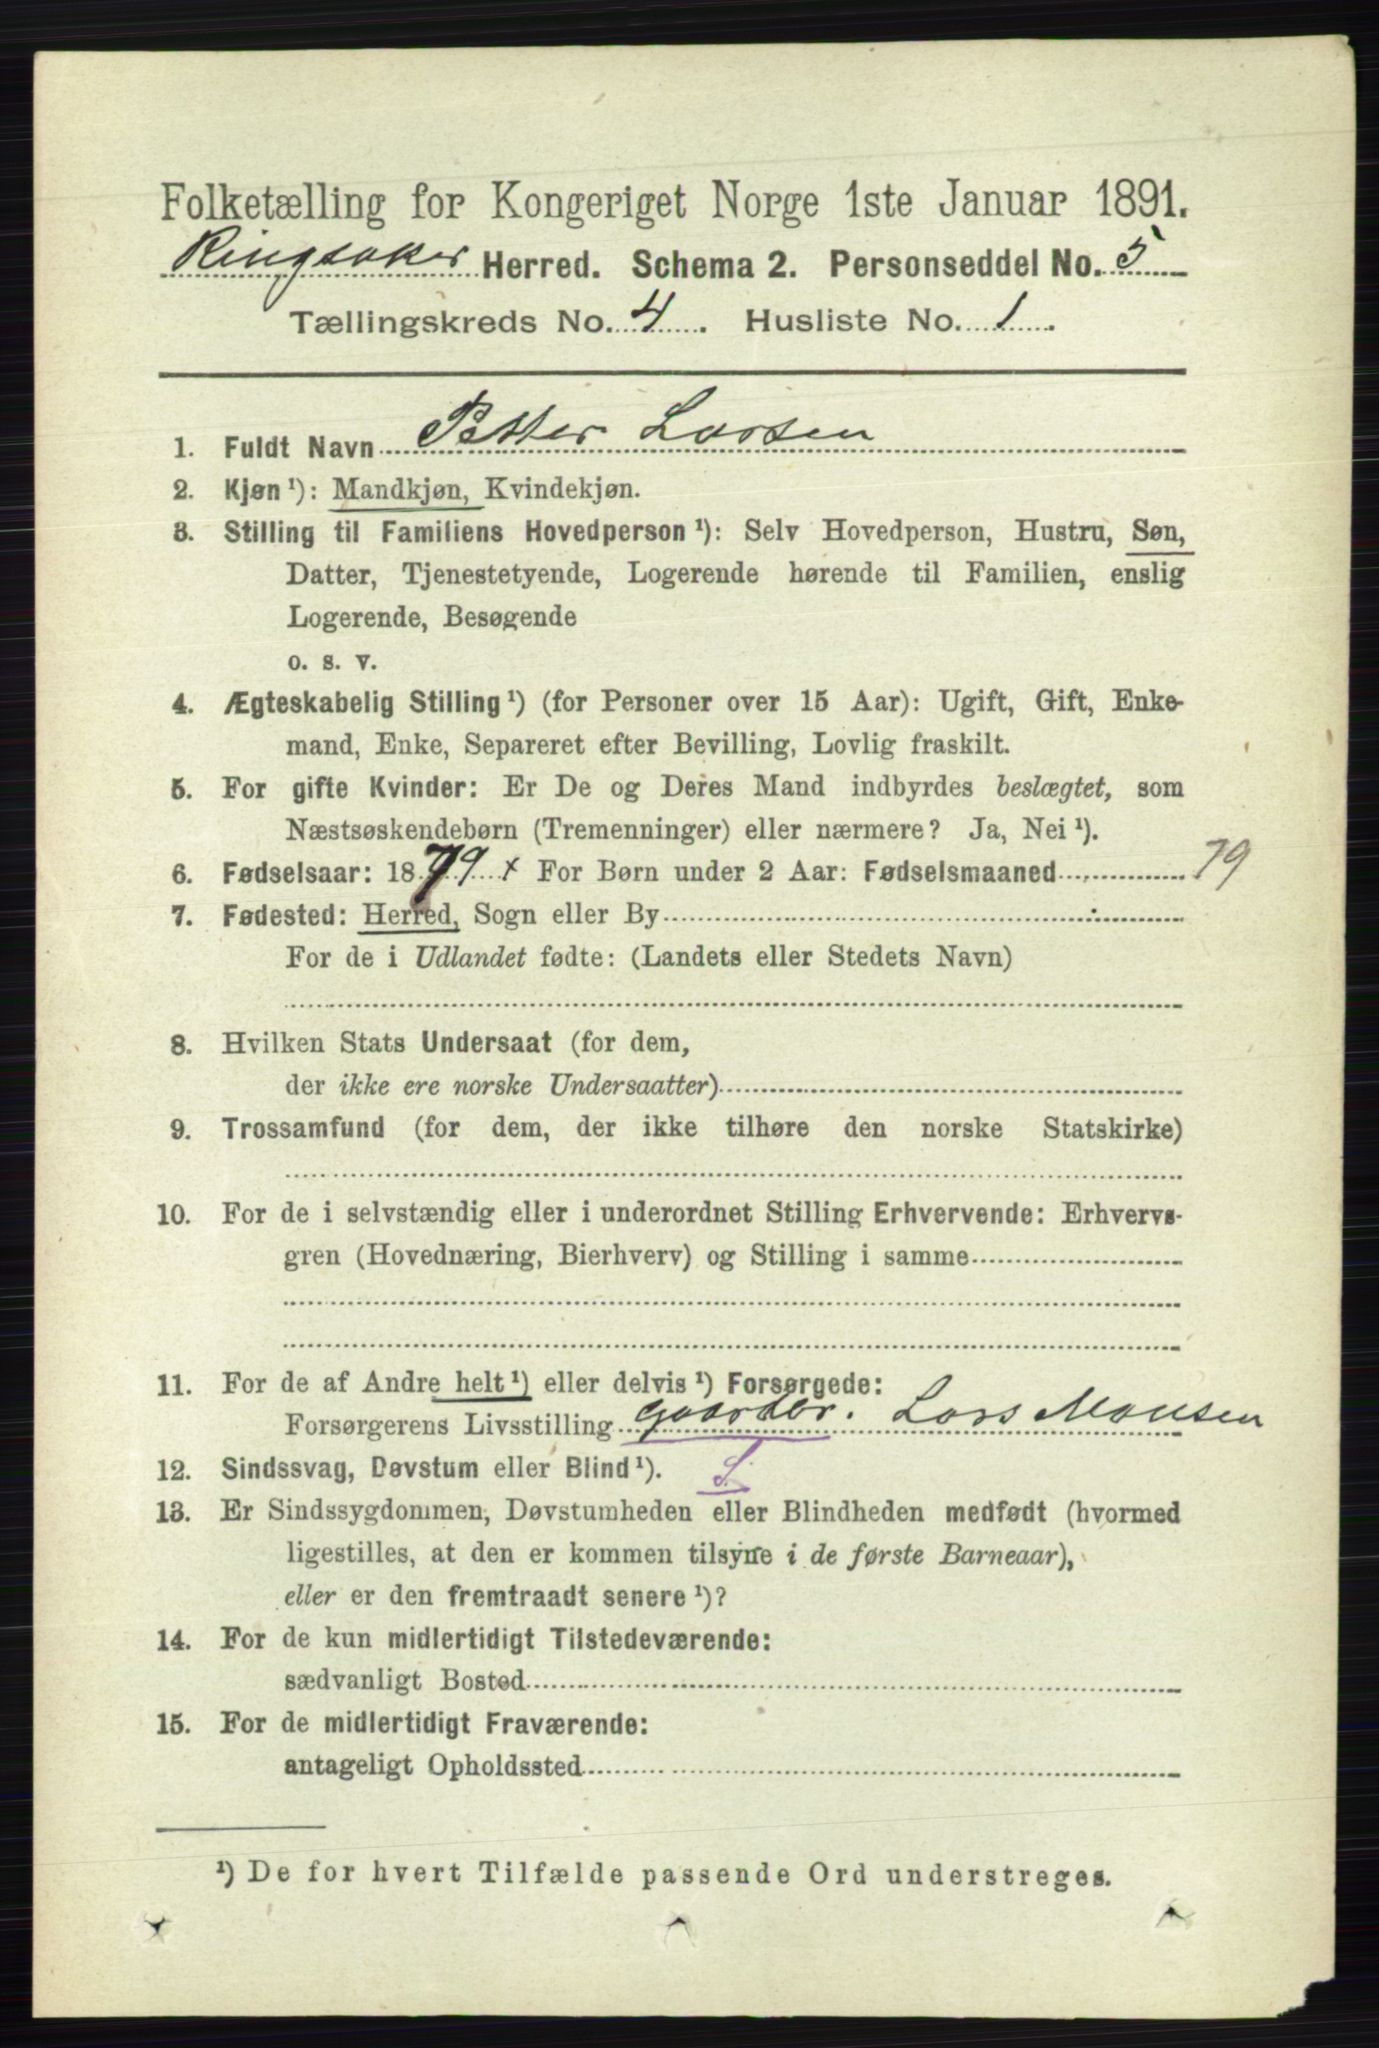 Folketælling for Kongeriget Norge 1ste Januar 1891.
Ringsaker Herred. Schema 2. Personseddel No. 5
Tællingskreds No. 4. Husliste No. 1.
1. Fuldt Navn Petter Larsen
2. Kjøn¹): Mandkjøn, Kvindekjøn.
3. Stilling til Familiens Hovedperson¹): Selv Hovedperson, Hustru, Søn,
Datter, Tjenestetyende, Logerende hørende til Familien, enslig
Logerende, Besøgende
o. s. v.
4. Ægteskabelig Stilling¹) (for Personer over 15 Aar): Ugift, Gift, Enke-
mand, Enke, Separeret efter Bevilling, Lovlig fraskilt.
5. For gifte Kvinder: Er De og Deres Mand indbyrdes beslægtet, som
Næstsøskendebørn (Tremenninger) eller nærmere? Ja, Nei¹).
6. Fødselsaar: 1879 x For Børn under 2 Aar: Fødselsmaaned 79
7. Fødested: Herred, Sogn eller By
For de i Udlandet fødte: (Landets eller Stedets Navn)
8. Hvilken Stats Undersaat (for dem,
der ikke ere norske Undersaatter)
9. Trossamfund (for dem, der ikke tilhøre den norske Statskirke)
10. For de i selvstændig eller i underordnet Stilling Erhvervende: Erhvervs-
gren (Hovednæring, Bierhverv) og Stilling i samme
11. For de af Andre helt¹) eller delvis¹) Forsørgede:
Forsørgerens Livsstilling gaardbr. Lars Monsen
12. Sindssvag, Døvstum eller Blind¹). S.
13. Er Sindssygdommen, Døvstumheden eller Blindheden medfødt (hvormed
ligestilles, at den er kommen tilsyne i de første Barneaar),
eller er den fremtraadt senere¹)?
14. For de kun midlertidigt Tilstedeværende:
sædvanligt Bosted
15. For de midlertidigt Fraværende:
antageligt Opholdssted
¹) De for hvert Tilfælde passende Ord understreges.